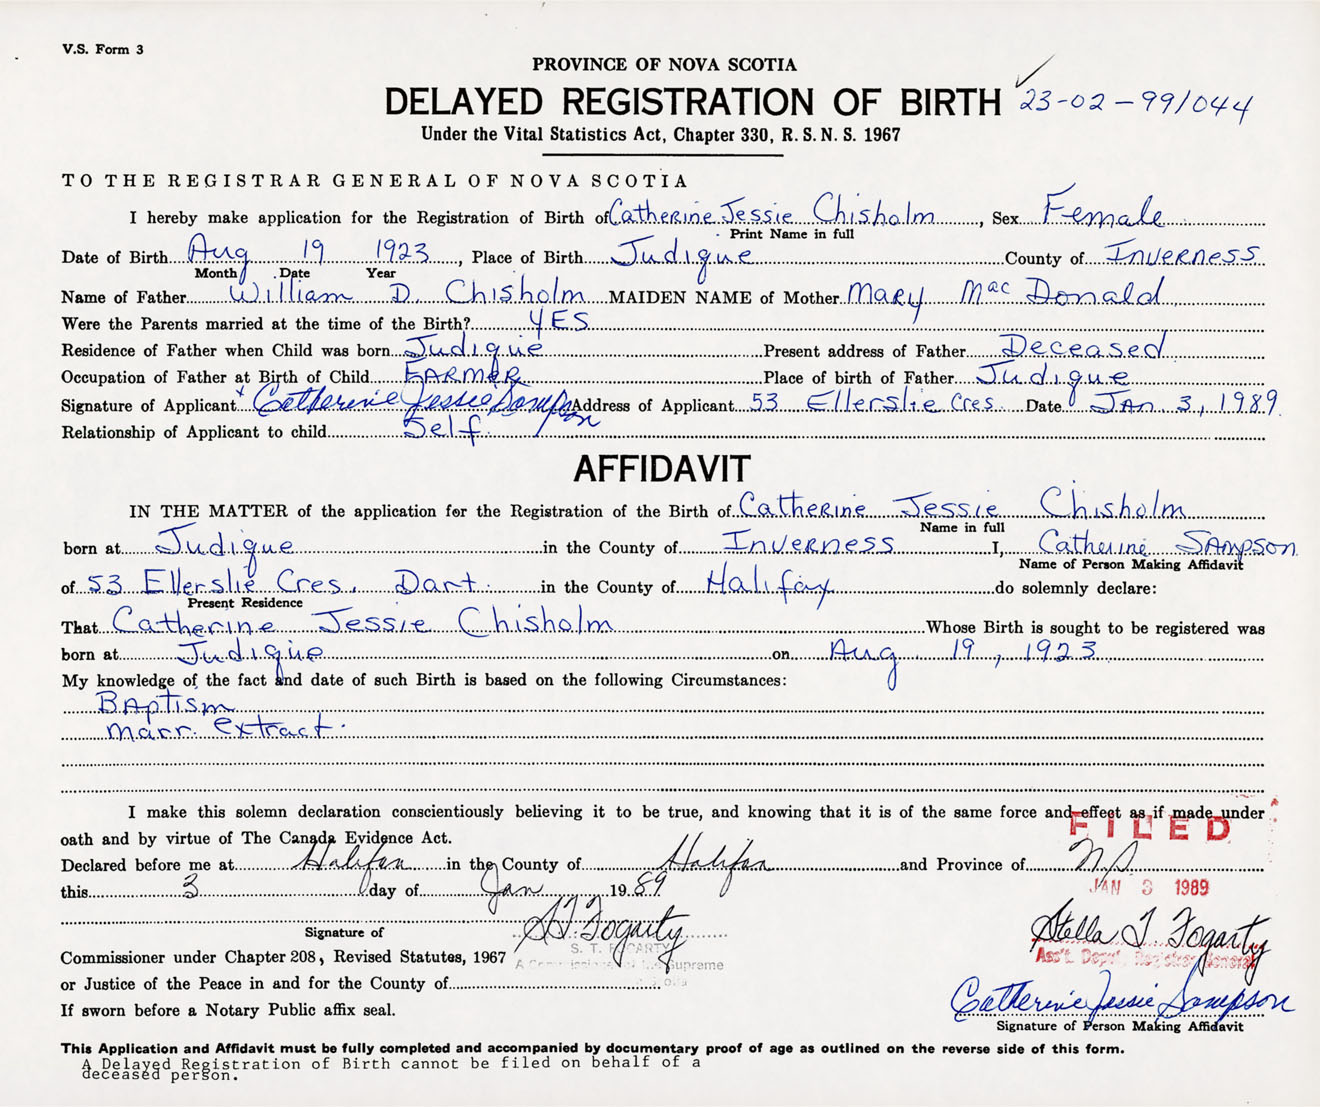 V.S. Form 3
PROVINCE OF NOVA SCOTIA
DELAYED REGISTRATION OF BIRTH 23-02-99/044
Under the Vital Statistics Act, Chapter 330, R.S.N.S. 1967
TO THE REGISTRAR GENERAL OF NOVA SCOTIA
I hereby make application for the Registration of Birth of Catherine Jessie Chisholm, Sex Female
Print Name in full
Date of Birth Aug 19 1923, Place of Birth Judique County of Inverness
Month Date Year
Name of Father William D. Chisholm MAIDEN NAME of Mother Mary MacDonald
Were the Parents married at the time of the Birth? YES
Residence of Father when Child was born Judique Present address of Father Deceased
Occupation of Father at Birth of Child FARMER Place of birth of Father Judique
Signature of Applicant x Catherine Jessie Sampson Address of Applicant 53 Ellerslie Cres. Date Jan 3, 1989
Relationship of Applicant to child Self.
AFFIDAVIT
IN THE MATTER of the application for the Registration of the Birth of Catherine Jessie Chisholm
Name in full
born at Judique in the County of Inverness I, Catherine Sampson
Name of Person Making Affidavit
of 53 Ellerslie Cres. Dart. in the County of Halifax do solemnly declare:
Present Residence
That Catherine Jessie Chisholm Whose Birth is sought to be registered was
born at Judique on Aug 19, 1923
My knowledge of the fact and date of such Birth is based on the following Circumstances:
Baptism
marr. extract.
I make this solemn declaration conscientiously believing it to be true, and knowing that it is of the same force and effect as if made under
oath and by virtue of The Canada Evidence Act.
FILED
Declared before me at Halifax in the County of Halifax and Province of N.S.
this 3 day of Jan 1989
JAN 3 1989
S.T. Fogarty
Stella T. Fogarty
Signature of
S. T. FOGARTY
Ass't. Deputy Registrar General
Commissioner under Chapter 208, Revised Statutes, 1967
A Commissioner of the Supreme
or Justice of the Peace in and for the County of
Catherine Jessie Sampson
If sworn before a Notary Public affix seal.
Signature of Person Making Affidavit
This Application and Affidavit must be fully completed and accompanied by documentary proof of age as outlined on the reverse side of this form.
A Delayed Registration of Birth cannot be filed on behalf of a
deceased person.